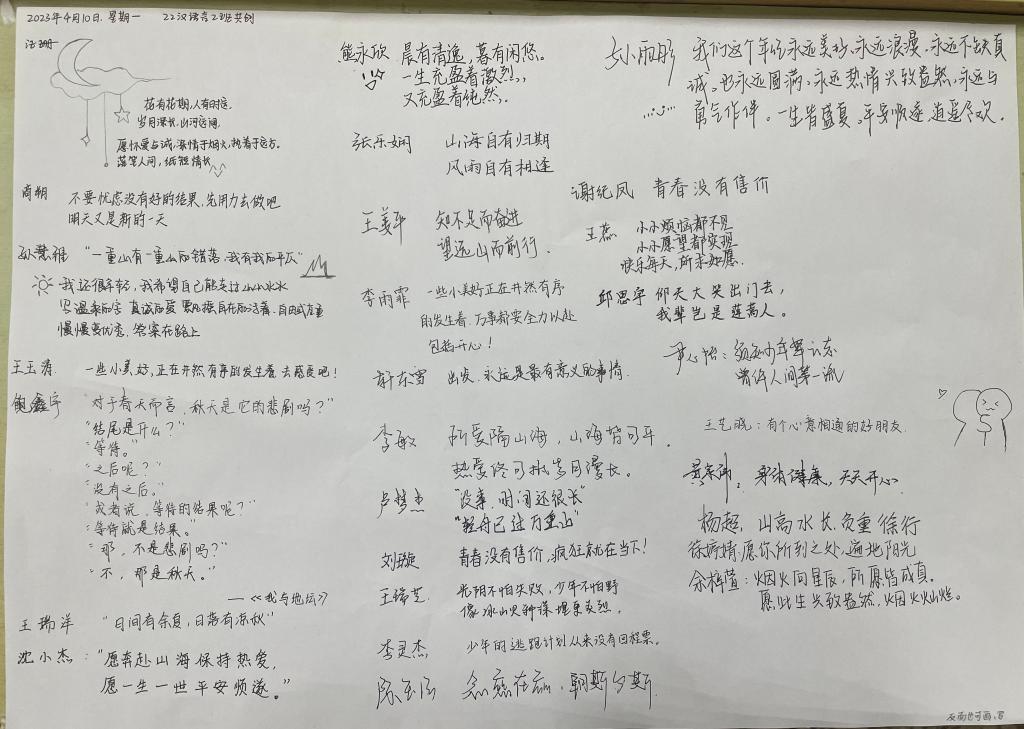 2023年4月10日.星期一 22汉语言2班共创
汪珊
花有花期,人有时运.
岁月漫长,山河远阔.
愿怀爱与诚,深情于烟火,执着于远方.
落笔人间,纸短情长
商朔 不要忧虑没有好的结果,先用力去做吧
明天又是新的一天
孙慧雅 “一重山有一重山的错落,我有我的平仄”
我还很年轻,我希望自己能走过山山水水
慢慢变优秀,答案在路上
王玉涛 一些小美好,正在井然有序的发生着 去感受吧!
鲍鑫宇 “对于春天而言,秋天是它的悲剧吗?”
“结尾是什么?”
“等待。”
“之后呢?”
“没有之后。”
“或者说,等待的结果呢?”
“等待就是结果。”
“那,不是悲剧吗?”
“不,那是秋天。”
——《我与地坛》
王瑞洋 “日间有余夏,日落有凉秋”
沈小杰:“愿奔赴山海保持热爱,
愿一生一世平安顺遂。”
熊永欣 晨有清逸,暮有闲悠。
一生充盈着激烈,
又充盈着纯然,.
张乐娴 山海自有归期
风雨自有相逢
王姜平 知不足而奋进
望远山而前行.
李雨霏 一些小美好正在井然有序
的发生着.万事都要全力以赴
包括开心!
出发,永远是最有意义的事情.
李敏 所爱隔山海,山海皆可平.
热爱终可抵岁月漫长.
卢梦杰 “没事,时间还很长”
“轻舟已过万重山”
刘璇 青春没有售价,疯狂就在当下!
王瑞芝 光阴不怕失败,少年不怕野
李灵杰 少年的逃跑计划从来没有回程票.
孙丽彤 我们这个年纪永远美妙,永远浪漫,永远不缺真
诚,也永远圆满,永远热情兴致盎然,永远与
勇气作伴。一生皆盛夏,平安顺遂,逍遥尽欢.
谢纯凤 青春没有售价
王蕊 小小烦恼都不见
小小愿望都实现
快乐每天,所求如愿.
邱思宇 仰天大笑出门去,
我辈岂是蓬蒿人。
尹心怡:须知少年擎云志
曾许人间第一流
王艺晓:有个心意相通的好朋友.
身体健康,天天开心
杨超, 山高水长,负重徐行
徐婷婧:愿你所到之处,遍地阳光
余梓萱:烟火向星辰,所愿皆成真.
愿此生兴致盎然,烟火灿烂.
反面也可画、写